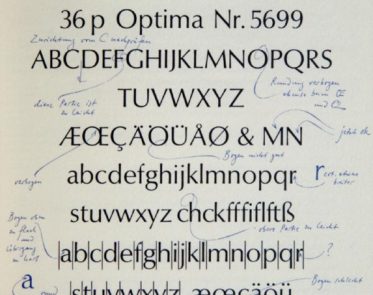 36 p Optima Nr. 5699
Zurichtung vom C nachprüfen
ABCDEFGHIJKLMNOPQRS
diese Partie ist zu leicht
Rundung verbogen ebenso beim Œ und Q
TUVWXYZ
ÆŒÇÄÖÜÅØ & MN
jetzt ok
verbogen
Bogen nicht gut
abcdefghijklmnopqr
r
stuvwxyz chckfffiflftß
Bogen oben zu flach und Übergang zu
obere Partie zu leicht
abcdefghijklmnopqr
?
a
Bogen schlecht
rund
stuvwxyz æœçäöü